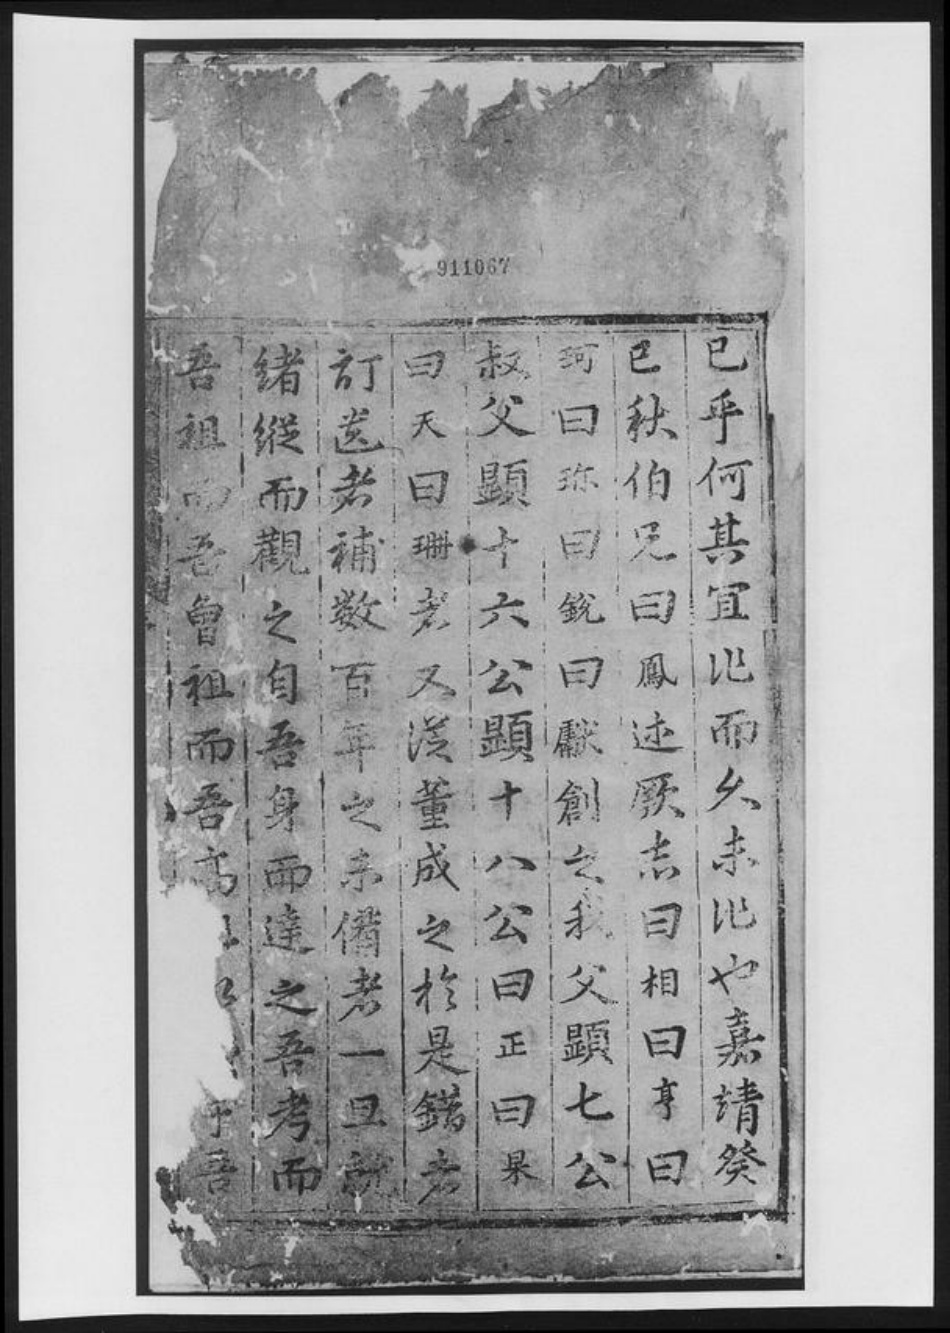 911067
已乎何其宜作而久未作也嘉靖癸
巳秋伯兄曰鳳述厥志曰相曰亨曰
珂曰珎曰銳曰獻創之我父顯七公
叔父顯十六公顯十八公曰正曰杲
曰天曰珊者又從董成之於是錯者
訂遺者補数百年之未備者一旦
緒縱而觀之自吾身而達之吾考而
吾祖而吾曽祖而吾高
于吾